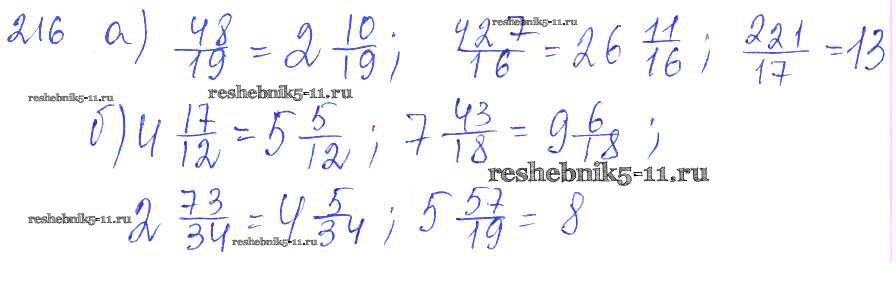 reshebnik5-11.ru
216 а) 48/19 = 2 10/19; 427/16 = 26 11/16; 221/17 = 13
reshebnik5-11.ru reshebnik5-11.ru
б) 4 17/12 = 5 5/12; 7 43/18 = 9 6/18;
reshebnik5-11.ru
2 73/34 = 4 5/34; 5 57/19 = 8
reshebnik5-11.ru reshebnik5-11.ru